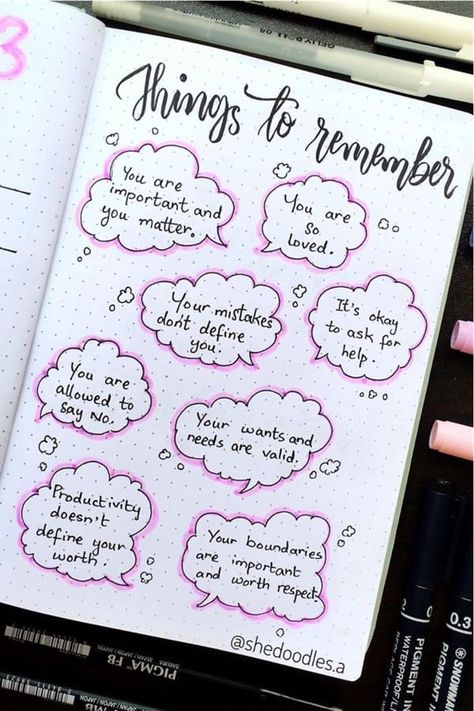 3
GELLY-ROLL 08
Things to remember
You are
important and
you matter.
You are
so
loved.
Your mistakes
don't define
you.
It's okay
to ask for
help.
You are
allowed to
say No.
Your wants and
needs are valid.
Productivity
doesn't
define your
worth.
Your boundaries
are important
and worth respect.
@shedoodles.a
PIGMA FB
0.3
PIGMENT
WATERPROOF
0.3
SNOWMAN
PIGMENT